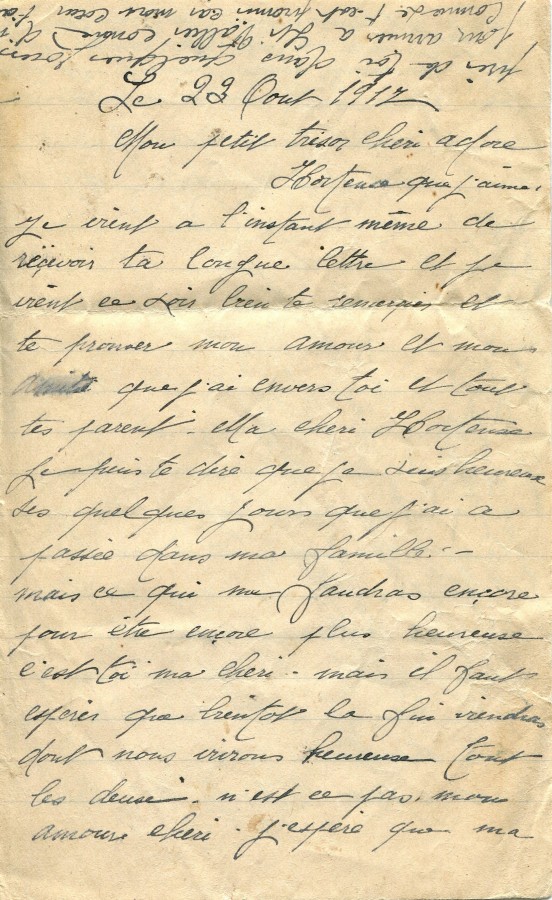 Le 23 Aout 1917
Mon petit trésor cheri adore
Hortense que j'aime.
Je vient a l'instant même de
reçevoir ta longue lettre et je
vient ce soir bien te remercier et
te prouver mon amour et mon
amitié que j'ai envers toi et tout
tes parent. Ma cheri Hortense
Je puis te dire que je suis heureux
ses quelques jours que j'ai a
passée dans ma famille. -
mais ce qui me faudras ençore
pour être ençore plus heureuse
c'est toi ma cheri - mais il faut
esperer que bientot la fin viendras
dont nous vivrons heureuse tout
les deuse. n'est ce pas. mon
amour cheri. j'espère que ma
pres de toi dans quelques jours
pour arriver a